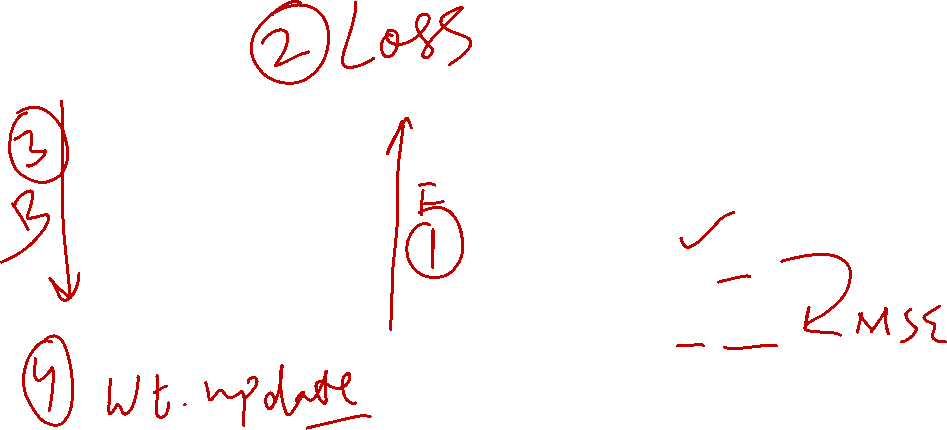 ② Loss
③
B
F
①
RMSE
④ Wt. update